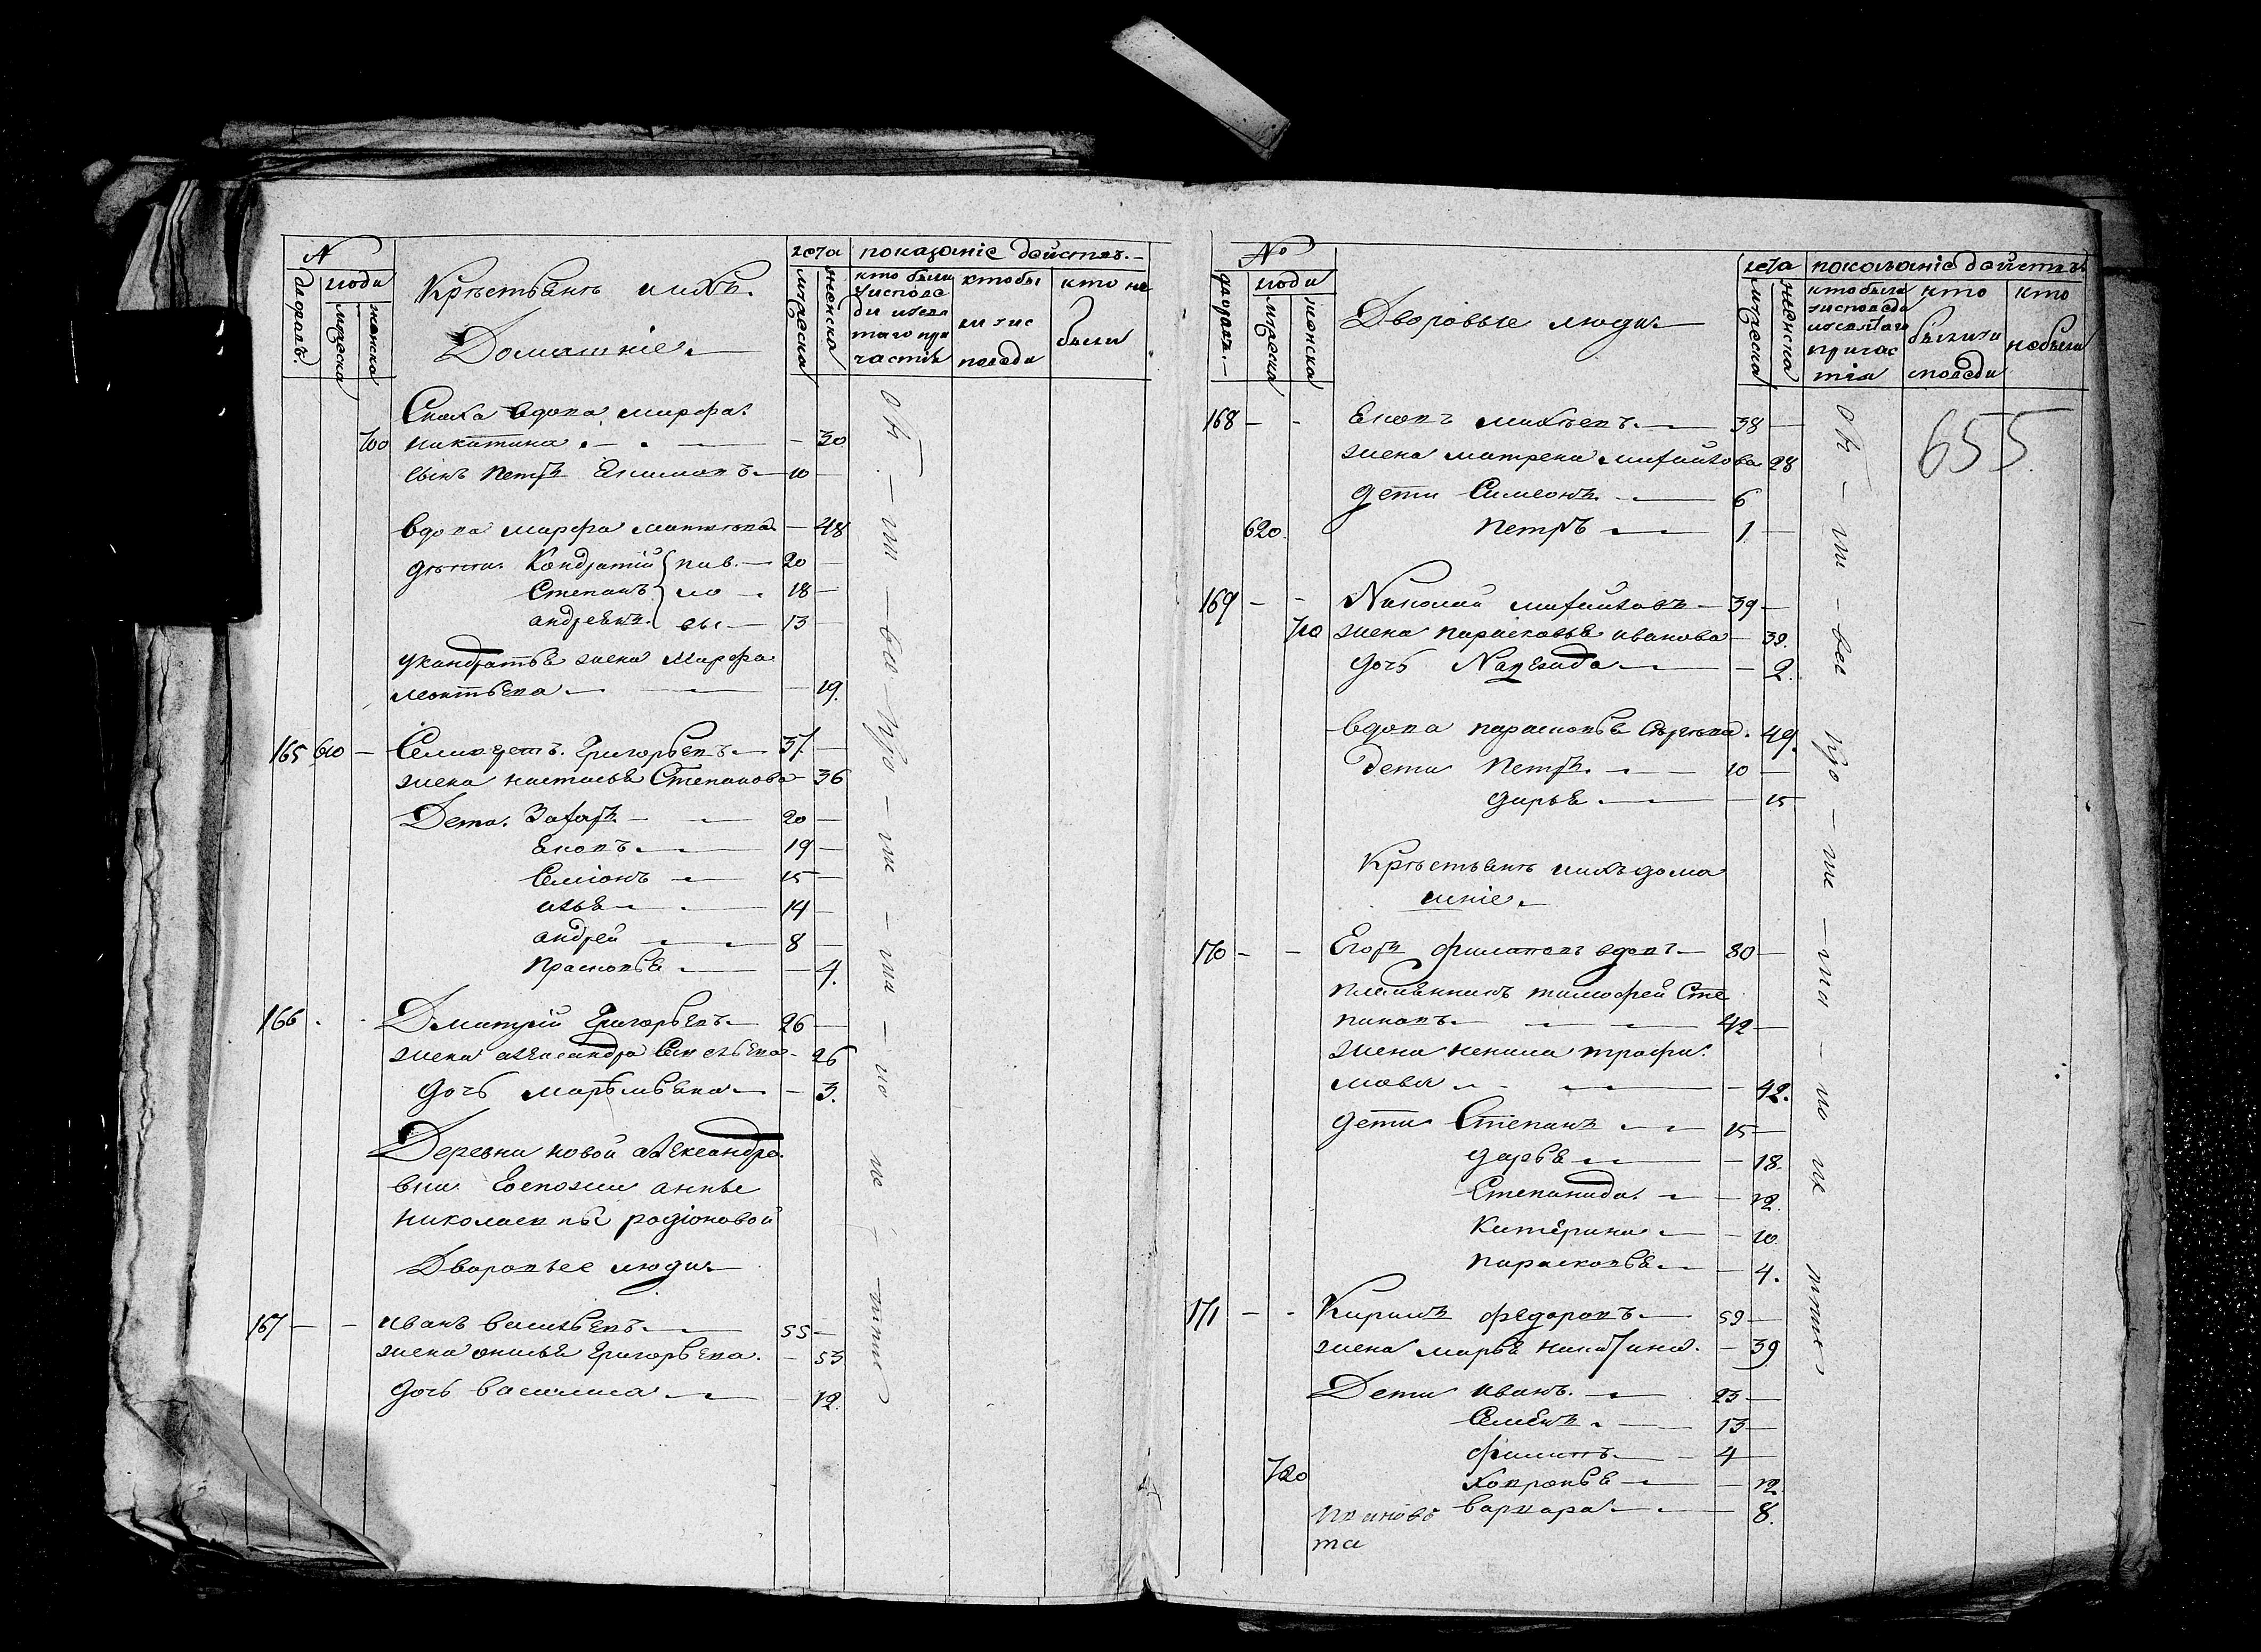 №
дворовъ.
люди
мужеска
женска
Крестьяне ихъ.
Домашніе
лета
мужеска
женска
показаніе действ.
кто были
у испове
ди и свя
таго при
частія
кто бы
ли у ис
поведи
кто не
были
Сноха вдова марфа
700 никитина — 30
сынъ петръ Екимовъ 10
вдова марфа матвѣева — 48
дѣти Кондратій 20
Степанъ 18
андреянъ 13
у кандратья жена Марфа
леонтьева — 19.
165 610 — Селиверстъ Григорьевъ 37
жена настасья Степанова — 36
Дети Захаръ 20
Яковъ 19
Семіонъ 15
илья 14
андрей 8
Прасковья — 4.
166 Дмитрій Григорьевъ 26
жена александра Савельева — 26
дочь марья — 3.
Деревни новой Александро
вки Госпожи анны
николаевны родіоновой
Дворовые люди
167 — — иванъ васильевъ 55
жена анисья Григорьева — 53
дочь василиса — 12.
№
дворовъ.
люди
мужеска
женска
Дворовые люди
лета
мужеска
женска
показаніе действъ
кто были
у исповеди
и святаго
причас
тія
кто
были у и
споведи
кто
не были
655
168 — - Яковъ михѣевъ 38
жена матрена михайлова 28
дети Симеонъ 6
620 петръ 1
169 — - Николай михайловъ 39
710 жена парасковья иванова — 39.
дочь Надежда — 2.
вдова парасковья Сергѣева 49.
дети петръ 10
дарья — 15
Крестьяне ихъ дома
шніе
170 - - Егоръ филатовъ вдовъ 80
племянникъ тимофей Сте
пановъ 42
жена ненила трофи
мова — 42.
дети Степанъ 15
дарья — 18.
Степанида — 12.
Катерина — 10.
парасковья — 4.
171 — - Кирилъ федоровъ 59
жена марья никитина — 39
Дети иванъ 23
Семенъ 13
филипъ 4
720 хавронья — 12.
варвара — 8.